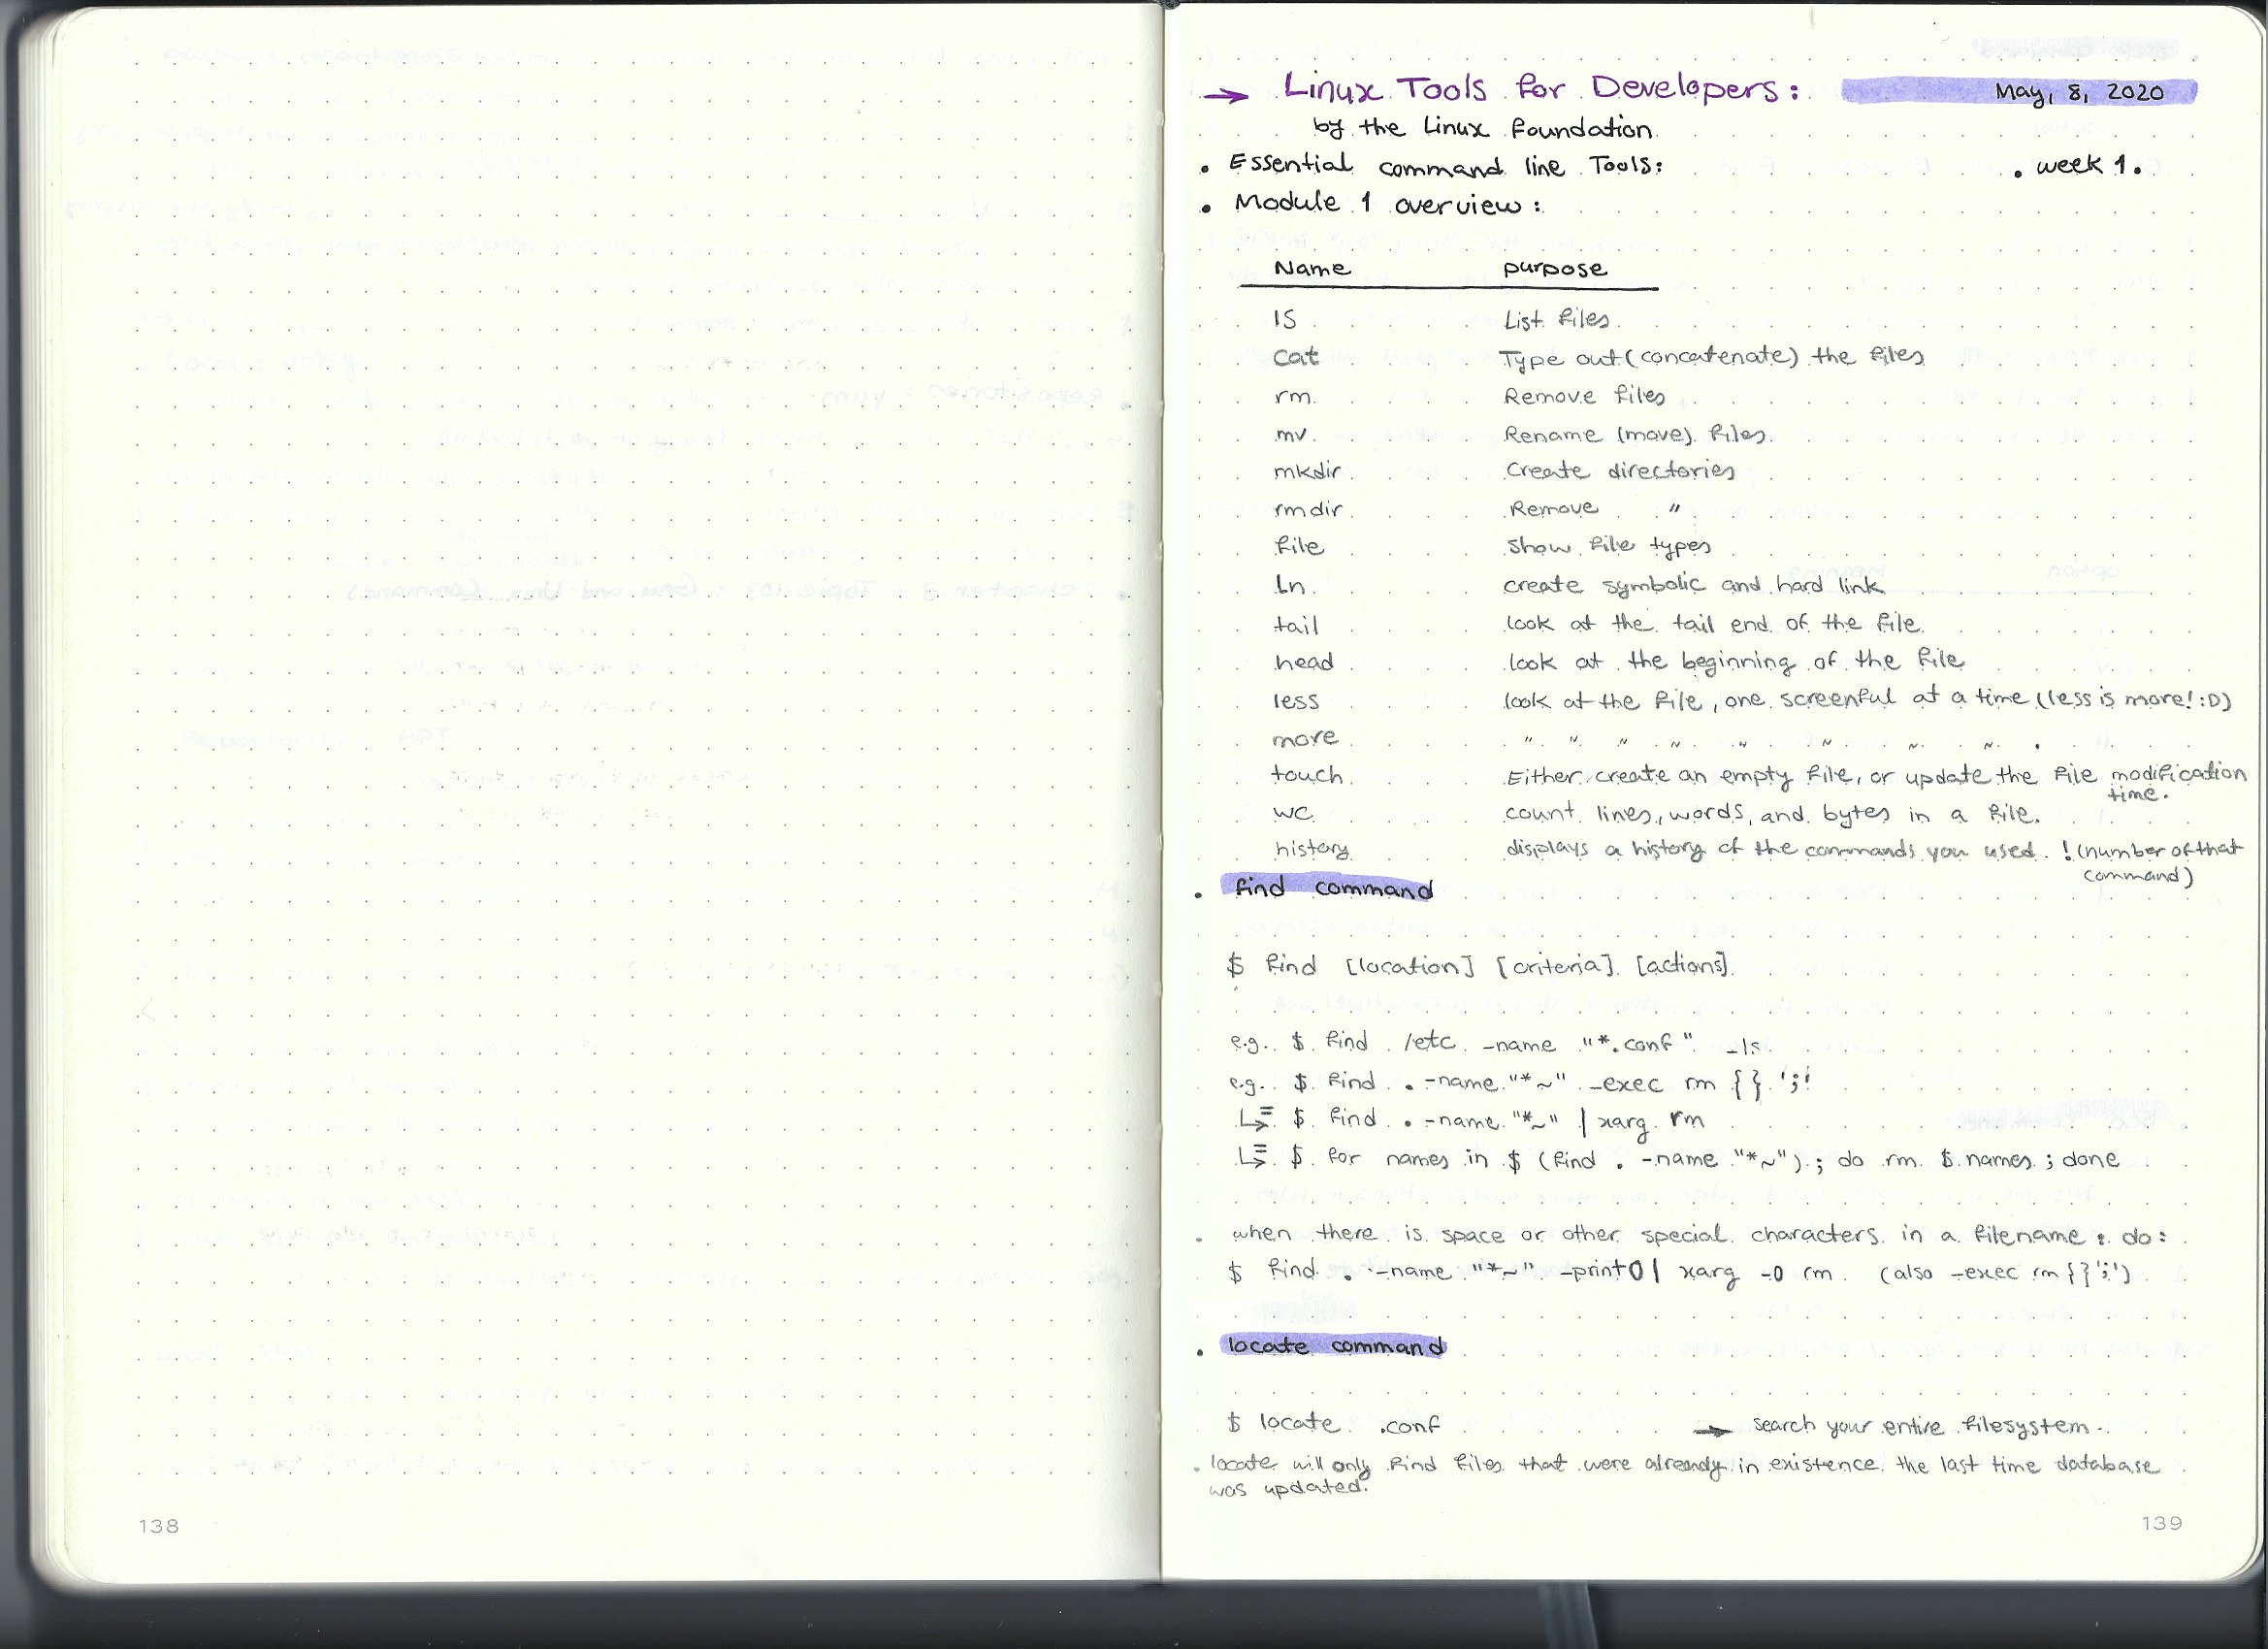 → Linux Tools for Developers: May, 8, 2020
by the Linux Foundation
• Essential command line Tools: • week 1.
• Module 1 overview:
Name purpose
ls List files
cat Type out (concatenate) the files
rm Remove files
mv Rename (move) files.
mkdir Create directories
rmdir Remove "
file Show file types
Ln create symbolic and hard link
tail look at the tail end of the file
head look at the beginning of the file
less look at the file, one screenful at a time (less is more! :D)
more " " " " " " " " .
touch Either create an empty file, or update the file modification
time.
wc count lines, words, and bytes in a file.
history displays a history of the commands you used. !(number of that
command)
• find command
$ find [location] [criteria] [actions]
e.g. $ find /etc -name "*.conf" -ls
e.g. $ find . -name "*~" -exec rm {} ';'
↳= $ find . -name "*~" | xarg rm
↳= $ for names in $ (find . -name "*~"); do rm $ names; done
. when there is space or other special characters in a filename: do:
$ find . -name "*~" -print0 | xarg -0 rm (also -exec rm {} ';')
• locate command
$ locate .conf → search your entire filesystem.
. locate will only find files that were already in existence the last time database
was updated.
138
139